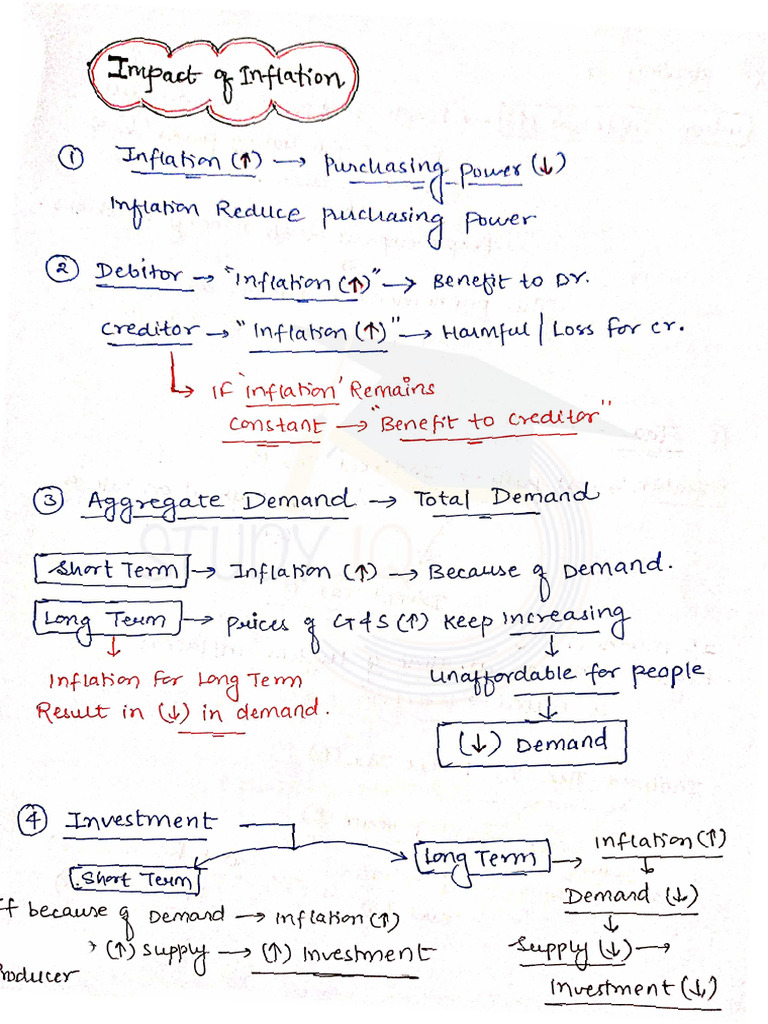 Impact of Inflation
① Inflation (↑) → Purchasing Power (↓)
Inflation Reduce purchasing power
② Debitor → "Inflation (↑)" → Benefit to Dr.
Creditor → "Inflation (↑)" → Harmful / Loss for Cr.
If 'inflation' Remains
constant → "Benefit to creditor"
③ Aggregate Demand → Total Demand
Short Term → Inflation (↑) → Because of Demand.
Long Term → Prices of G&S (↑) Keep Increasing
↓ ↓
Inflation for Long Term
Unaffordable for people
Result in (↓) in demand.
↓
(↓) Demand
④ Investment
Short Term
If because of Demand → Inflation (↑)
(↑) Supply → (↑) Investment
Producer
Long Term → Inflation (↑)
↓
Demand (↓)
↓
Supply (↓) →
Investment (↓)
STUDY